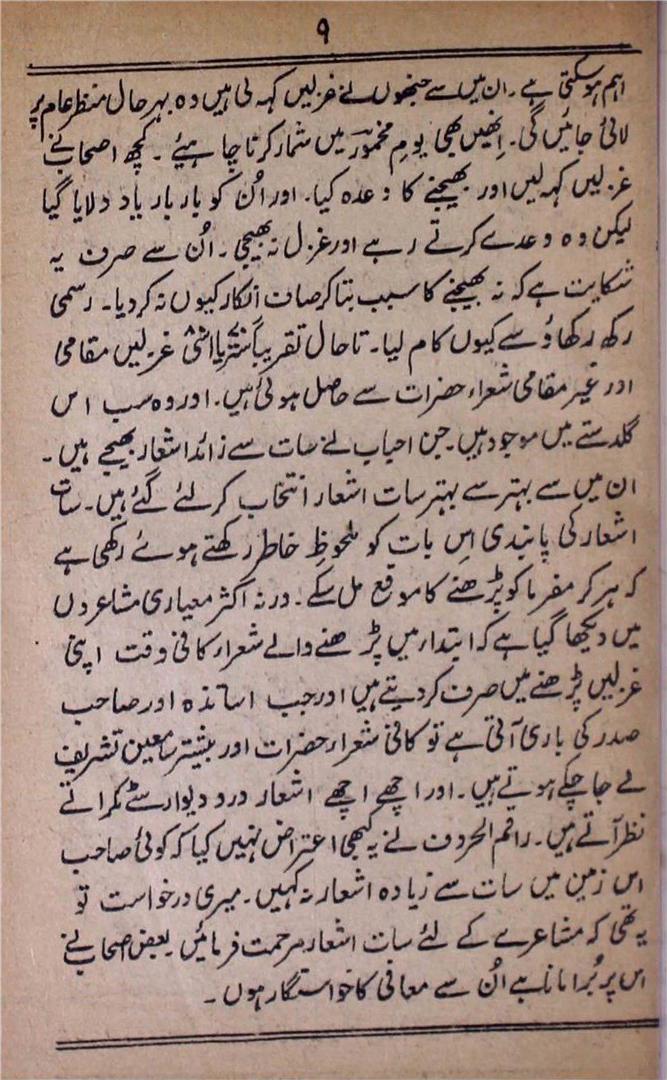 ۹
اہم ہو سکتی ہے۔ ان میں سے جنھوں نے غزلیں کہہ لی ہیں وہ بہر حال منظر عام پر
لائی جائیں گی۔ اِنھیں بھی یومِ مخمورؔ میں شمار کرنا چاہیئے۔ کچھ اصحاب نے
غزلیں کہہ لیں اور بھیجنے کا وعدہ کیا۔ اور اُن کو بار بار یاد دلایا گیا
لیکن وہ وعدے کرتے رہے اور غزل نہ بھیجی۔ اُن سے صرف یہ
شکایت ہے کہ نہ بھیجنے کا سبب بتا کر صاف انکار کیوں نہ کر دیا۔ رسمی
رکھ رکھاؤ سے کیوں کام لیا۔ تا حال تقریباً ستّر یا اسّی غزلیں مقامی
اور غیر مقامی شعراء حضرات سے حاصل ہوئی ہیں۔ اور وہ سب اس
گلدستے میں موجود ہیں۔ جن احباب نے سات سے زائد اشعار بھیجے ہیں۔
ان میں سے بہتر سے بہتر سات اشعار انتخاب کر لئے گئے ہیں۔ سات
اشعار کی پابندی اِس بات کو ملحوظِ خاطر رکھتے ہوئے رکھی ہے
کہ ہر کرم فرما کو پڑھنے کا موقع مل سکے۔ ورنہ اکثر معیاری مشاعروں
میں دیکھا گیا ہے کہ ابتداء میں پڑھنے والے شعراء کافی وقت اپنی
غزلیں پڑھنے میں صرف کر دیتے ہیں اور جب اساتذہ اور صاحب
صدر کی باری آتی ہے تو کافی شعراء حضرات اور بیشتر سامعین تشریف
لے جا چکے ہوتے ہیں۔ اور اچھے اچھے اشعار در و دیوار سے ٹکراتے
نظر آتے ہیں۔ راقم الحروف نے یہ کبھی اعتراض نہیں کیا کہ کوئی صاحب
اس زمین میں سات سے زیادہ اشعار نہ کہیں۔ میری درخواست تو
یہ تھی کہ مشاعرے کے لئے سات اشعار مرحمت فرمائیں بعض اصحاب نے
اس پر بُرا مانا ہے اُن سے معافی کا خواستگار ہوں۔